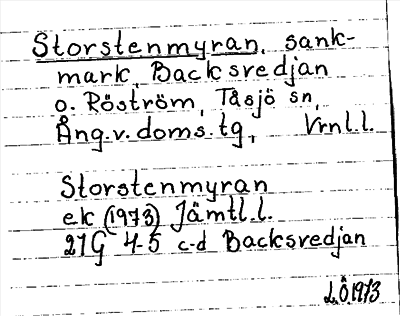 Storstenmyran, sank-
mark, Backsredjan
o. Röström, Tåsjö sn,
Ång.v.doms.tg, Vrnl.l.
Storstenmyran
ek (1973) Jämtl.l.
21G 4-5 c-d Backsredjan
L.Ö.1973